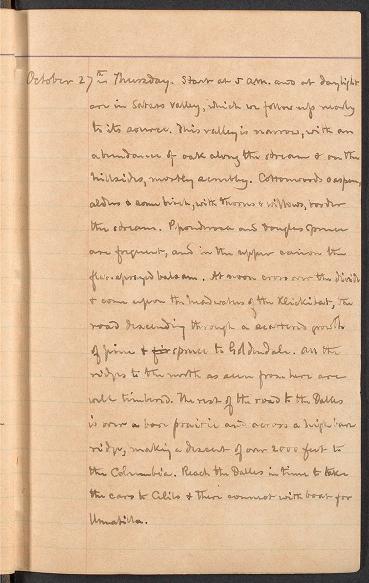 October 27th Thursday. Start at 5 a.m. and at daylight
are in Satass valley, which we follow up nearly
to its source. This valley is narrow, with an
abundance of oak along the stream & on the
hillsides, mostly scrubby. Cottonwoods & aspen,
alders & some birch, with thorns & willows, border
the stream. P. ponderosa and Douglas spruce
are frequent, and in the upper cañon the
balsam. At noon cross over the divide
& come upon the headwaters of the Klickitat, the
road descending through a scattered growth
of pine & fir spruce to Goldendale. All the
ridges to the north as seen from here are
well timbered. The rest of the road to the Dalles
is over a bare prairie and across a high bare
ridge, making a descent of over 2000 feet to
the Columbia. Reach the Dalles in time to take
the cars to Celilo & there connect with boat for
Umatilla.